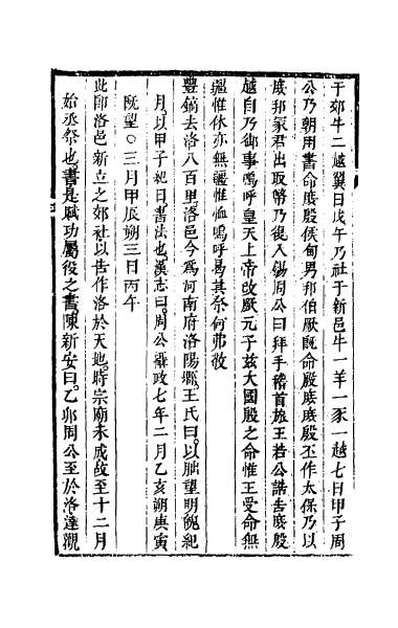 于郊牛二越翼日戊午乃社于新邑牛一羊一豕一越七日甲子周
公乃朝用書命庶殷侯甸男邦伯厥既命殷庶庶殷丕作太保乃以
庶邦冢君出取幣乃復入錫周公曰拜手稽首旅王若公誥告庶殷
越自乃御事嗚呼皇天上帝改厥元子茲大國殷之命惟王受命無
疆惟休亦無疆惟恤嗚呼曷其奈何弗敬
豐鎬去洛八百里洛邑今為河南府洛陽縣王氏曰以朏望明魄紀
月以甲子紀日書法也漢志曰周公攝政七年二月乙亥朔庚寅
既望○三月甲辰朔三日丙午
此卽洛邑新立之郊社以告作洛於天地時宗廟未成故至十二月
始烝祭也書是賦功屬役之書陳新安曰乙卯周公至於洛達觀